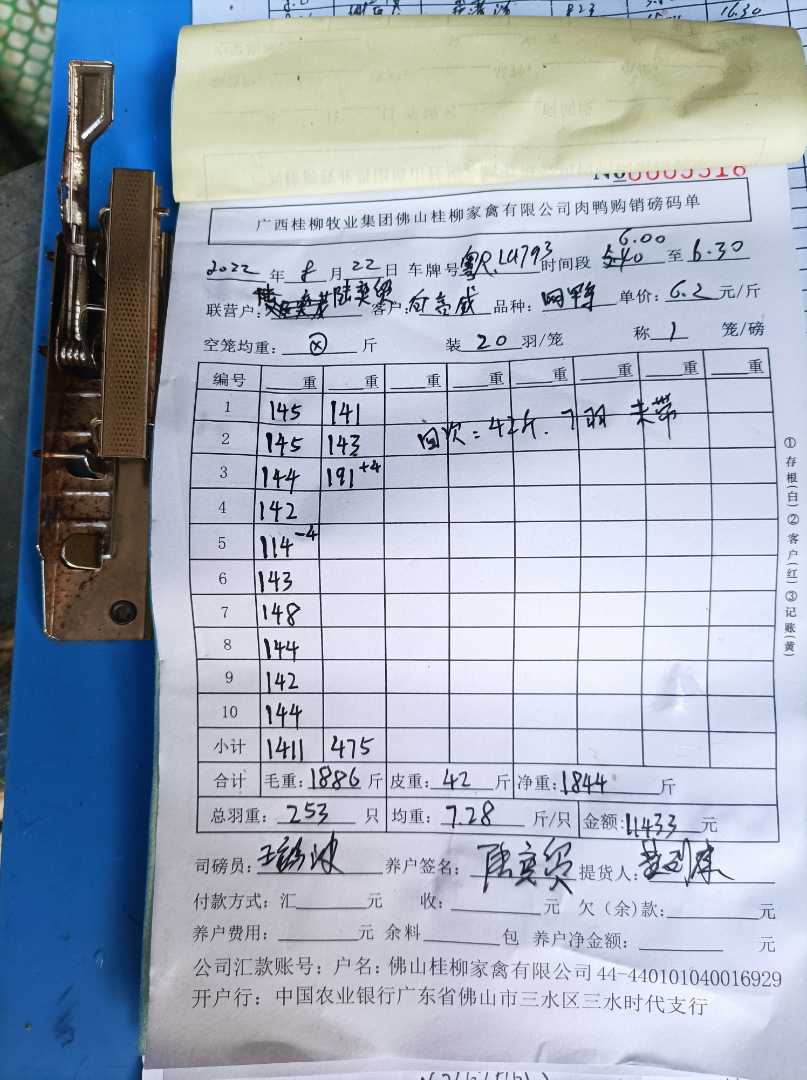 16.30
№0005516
广西桂柳牧业集团佛山桂柳家禽有限公司肉鸭购销磅码单
2022 年 8 月 22 日 车牌号 粤R.LU793 时间段 6.00 至 6.30
联营户: 陆奕贸 客户: 品种: 单价: 6.2 元/斤
空笼均重: ⊗ 斤 装 20 羽/笼 称 1 笼/磅
编号 重 重 重 重 重 重 重 重
1 145 141
2 145 143 回次: 42斤. 7羽 未带
3 144 191+4
4 142
5 114-4
6 143
7 148
8 144
9 142
10 144
小计 1411 475
合计 毛重: 1886 斤 皮重: 42 斤 净重: 1844 斤
总羽重: 253 只 均重: 7.28 斤/只 金额: 11433 元
司磅员: 养户签名: 陆奕贸 提货人:
付款方式: 汇 元 收: 元 欠(余)款: 元
养户费用: 元 余料 包 养户净金额: 元
公司汇款账号; 户名: 佛山桂柳家禽有限公司 44-440101040016929
开户行: 中国农业银行广东省佛山市三水区三水时代支行
①存根(白)②客户(红)③记账(黄)